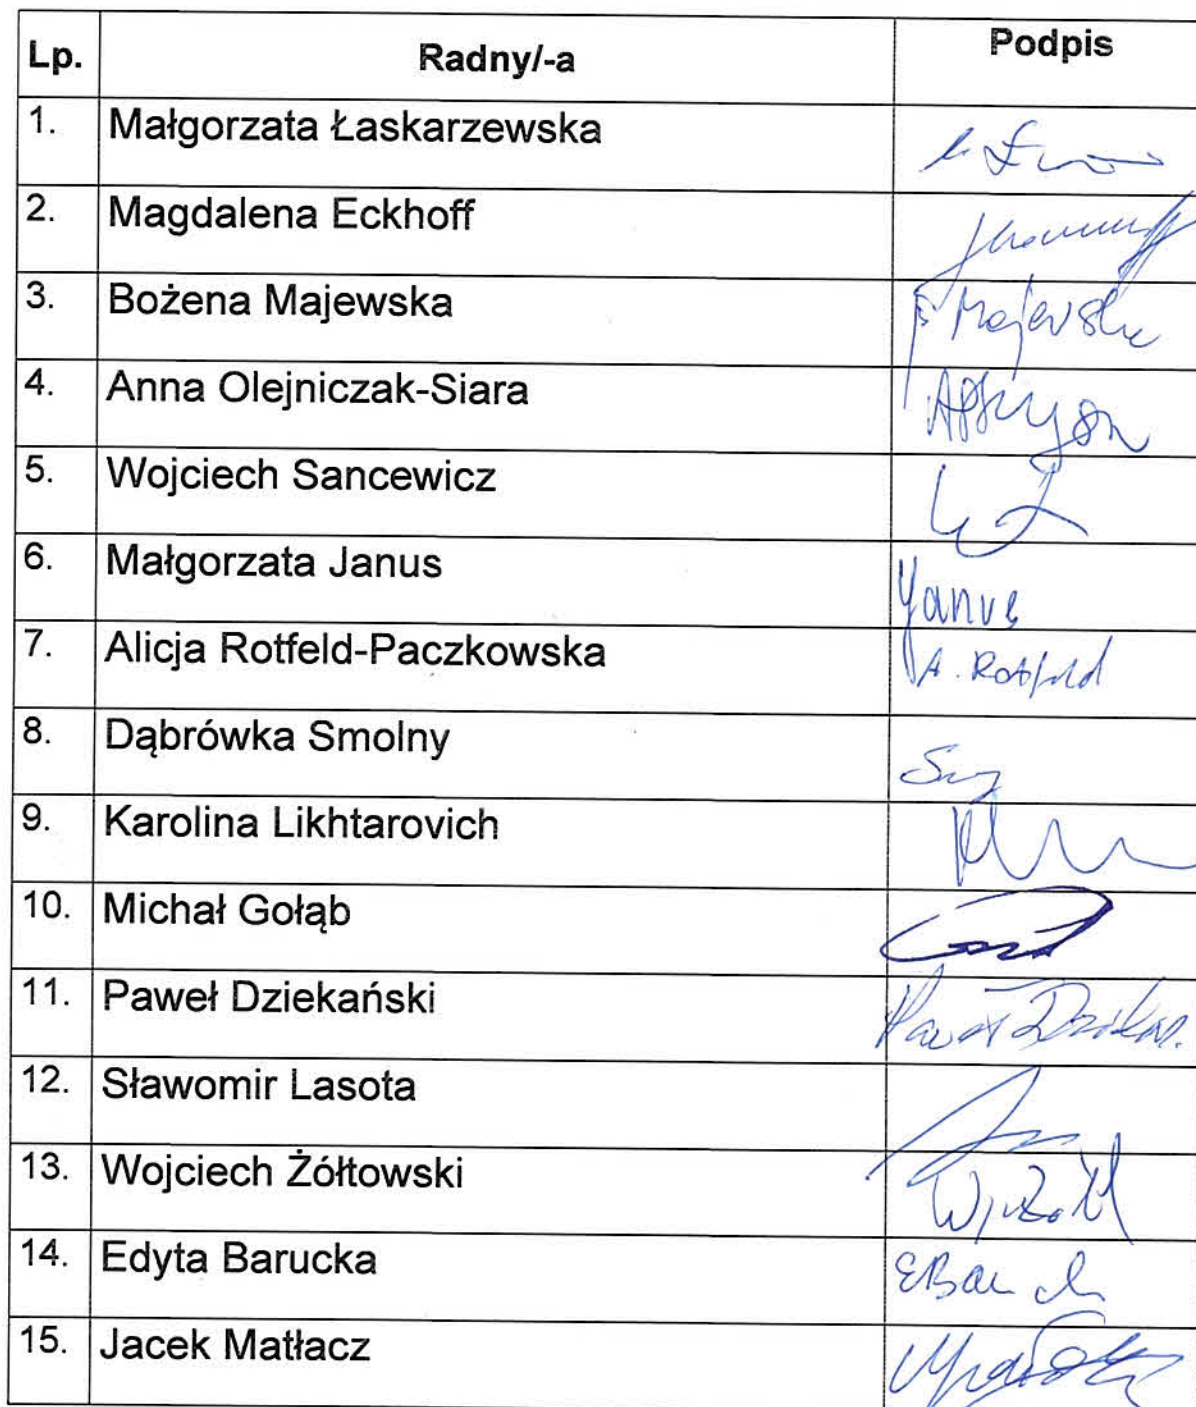 Lp. Radny/-a Podpis
1. Małgorzata Łaskarzewska
2. Magdalena Eckhoff
3. Bożena Majewska Majewska
4. Anna Olejniczak-Siara
5. Wojciech Sancewicz
6. Małgorzata Janus Janus
7. Alicja Rotfeld-Paczkowska A. Rotfeld
8. Dąbrówka Smolny
9. Karolina Likhtarovich
10. Michał Gołąb
11. Paweł Dziekański Paweł
12. Sławomir Lasota
13. Wojciech Żółtowski
14. Edyta Barucka
15. Jacek Matłacz